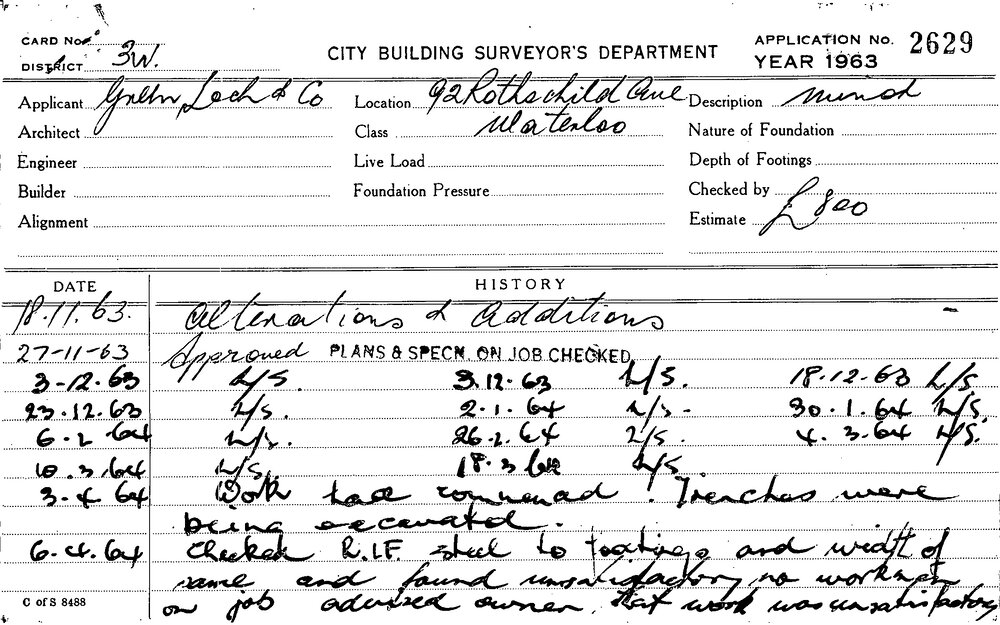 CARD No.
DISTRICT 3W.
CITY BUILDING SURVEYOR'S DEPARTMENT
APPLICATION No. 2629
YEAR 1963
Applicant & Co Location 92 Rothschild Ave Description minor
Architect Class Waterloo Nature of Foundation
Engineer Live Load Depth of Footings
Builder Foundation Pressure Checked by
Alignment Estimate £800
DATE HISTORY
18.11.63. Alterations & Additions -
27-11-63 Approved PLANS & SPECN. ON JOB CHECKED
3-12.63 L/S. 3.12.63 L/S. 18.12.63 L/S.
23.12.63 L/S. 2.1.64 L/S - 30.1.64 L/S.
6-2 64 L/S. 26.2.64 L/S. 4.3.64 L/S.
10.3.64 L/S. 18.3.64 L/S.
3-4 64 Work had commenced. Trenches were
being excavated.
6.4.64 Checked R.I.F. steel to footings and width of
same and found unsatisfactory no workmen
on job advised owner that work was unsatisfactory
C of S 8488